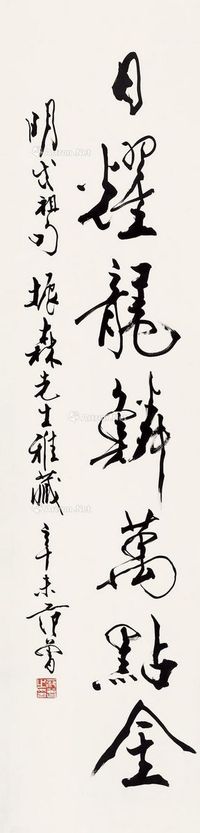 日耀龍鱗萬點金
明成祖句 振森先生雅藏 辛未 范曾